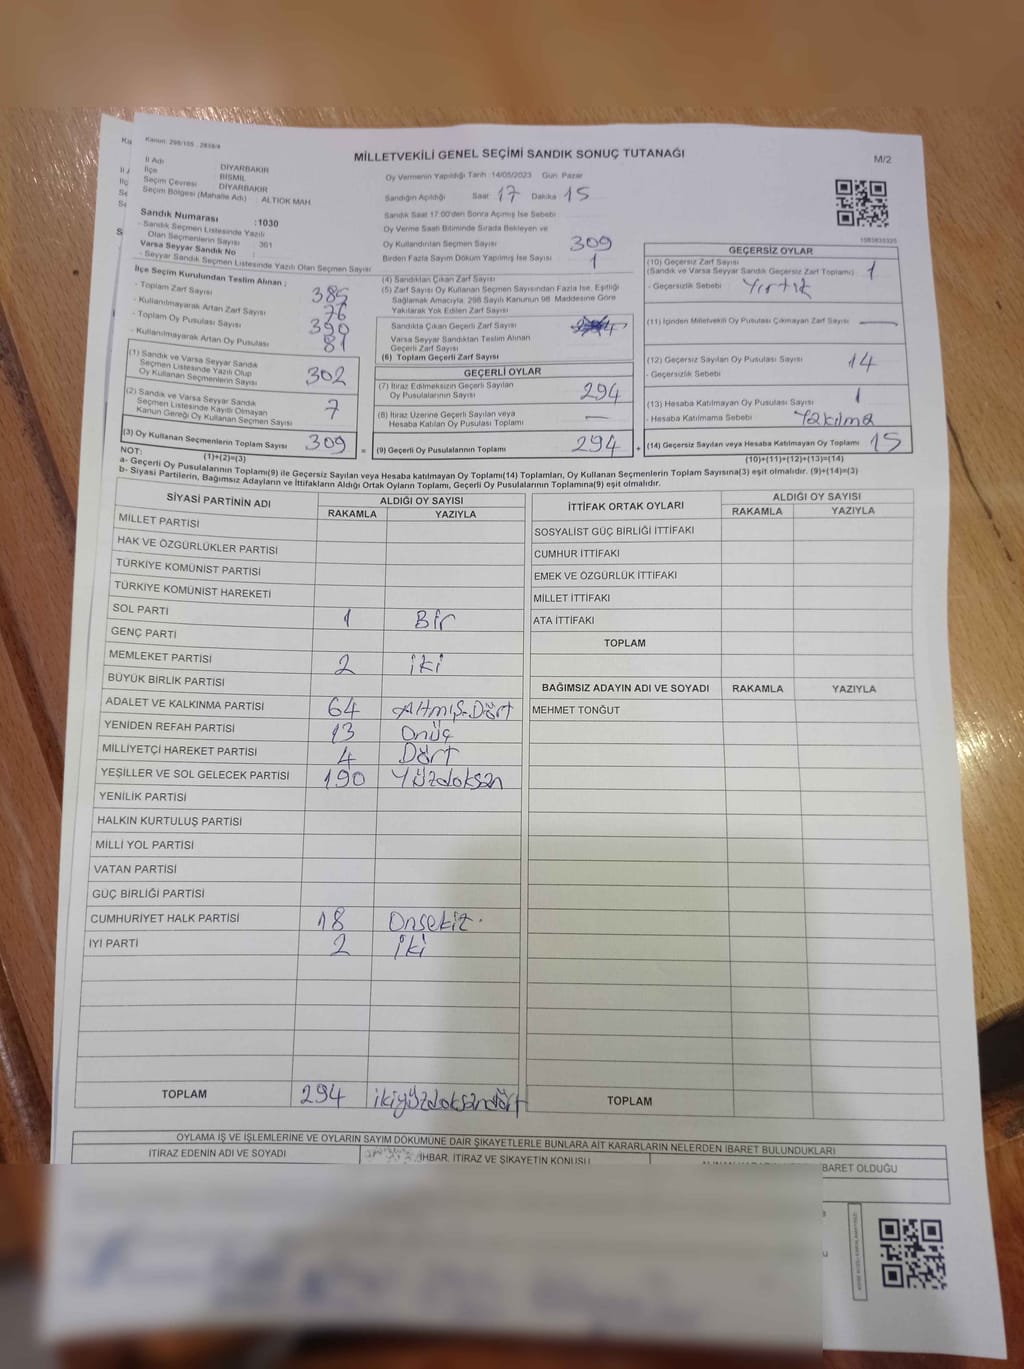 Kanun: 298/105 , 2839/4
MİLLETVEKİLİ GENEL SEÇİMİ SANDIK SONUÇ TUTANAĞI
M/2
İl Adı DİYARBAKIR
İlçe BİSMİL
Seçim Çevresi DİYARBAKIR
Seçim Bölgesi (Mahalle Adı) ALTIOK MAH
Sandık Numarası :1030
- Sandık Seçmen Listesinde Yazılı
Olan Seçmenlerin Sayısı 361
Varsa Seyyar Sandık No
- Seyyar Sandık Seçmen Listesinde Yazılı Olan Seçmen Sayısı
İlçe Seçim Kurulundan Teslim Alınan ;
- Toplam Zarf Sayısı 385
- Kullanılmayarak Artan Zarf Sayısı 76
- Toplam Oy Pusulası Sayısı 390
- Kullanılmayarak Artan Oy Pusulası 81
(1) Sandık ve Varsa Seyyar Sandık
Seçmen Listesinde Yazılı Olup
Oy Kullanan Seçmenlerin Sayısı 302
(2) Sandık ve Varsa Seyyar Sandık
Seçmen Listesinde Kayıtlı Olmayan
Kanun Gereği Oy Kullanan Seçmen Sayısı 7
(3) Oy Kullanan Seçmenlerin Toplam Sayısı 309
(1)+(2)=(3)
Oy Vermenin Yapıldığı Tarih :14/05/2023 Gün: Pazar
Sandığın Açıldığı Saat 17 Dakika 15
Sandık Saat 17:00'den Sonra Açılmış İse Sebebi
Oy Verme Saati Bitiminde Sırada Bekleyen ve
Oy Kullandırılan Seçmen Sayısı 309
Birden Fazla Sayım Döküm Yapılmış İse Sayısı 1
(4) Sandıktan Çıkan Zarf Sayısı
(5) Zarf Sayısı Oy Kullanan Seçmen Sayısından Fazla İse, Eşitliği
Sağlamak Amacıyla, 298 Sayılı Kanunun 98. Maddesine Göre
Yakılarak Yok Edilen Zarf Sayısı
Sandıkta Çıkan Geçerli Zarf Sayısı
Varsa Seyyar Sandıktan Teslim Alınan
Geçerli Zarf Sayısı
(6) Toplam Geçerli Zarf Sayısı
GEÇERLİ OYLAR
(7) İtiraz Edilmeksizin Geçerli Sayılan
Oy Pusulalarının Sayısı 294
(8) İtiraz Üzerine Geçerli Sayılan veya
Hesaba Katılan Oy Pusulası Toplamı —
= (9) Geçerli Oy Pusulalarının Toplamı 294 +
1083835325
GEÇERSİZ OYLAR
(10) Geçersiz Zarf Sayısı
(Sandık ve Varsa Seyyar Sandık Geçersiz Zarf Toplamı) 1
- Geçersizlik Sebebi Yırtık
(11) İçinden Milletvekili Oy Pusulası Çıkmayan Zarf Sayısı —
(12) Geçersiz Sayılan Oy Pusulası Sayısı 14
- Geçersizlik Sebebi
(13) Hesaba Katılmayan Oy Pusulası Sayısı 1
- Hesaba Katılmama Sebebi Yakılma
(14) Geçersiz Sayılan veya Hesaba Katılmayan Oy Toplamı 15
(10)+(11)+(12)+(13)=(14)
NOT:
a- Geçerli Oy Pusulalarının Toplamı(9) ile Geçersiz Sayılan veya Hesaba katılmayan Oy Toplamı(14) Toplamları, Oy Kullanan Seçmenlerin Toplam Sayısına(3) eşit olmalıdır. (9)+(14)=(3)
b- Siyasi Partilerin, Bağımsız Adayların ve İttifakların Aldığı Ortak Oyların Toplamı, Geçerli Oy Pusulalarının Toplamına(9) eşit olmalıdır.
SİYASİ PARTİNİN ADI ALDIĞI OY SAYISI
RAKAMLA YAZIYLA
MİLLET PARTİSİ
HAK VE ÖZGÜRLÜKLER PARTİSİ
TÜRKİYE KOMÜNİST PARTİSİ
TÜRKİYE KOMÜNİST HAREKETİ
SOL PARTİ 1 Bir
GENÇ PARTİ
MEMLEKET PARTİSİ 2 iki
BÜYÜK BİRLİK PARTİSİ
ADALET VE KALKINMA PARTİSİ 64 Altmış-Dört
YENİDEN REFAH PARTİSİ 13 Onüç
MİLLİYETÇİ HAREKET PARTİSİ 4 Dört
YEŞİLLER VE SOL GELECEK PARTİSİ 190 Yüzdoksan
YENİLİK PARTİSİ
HALKIN KURTULUŞ PARTİSİ
MİLLİ YOL PARTİSİ
VATAN PARTİSİ
GÜÇ BİRLİĞİ PARTİSİ
CUMHURİYET HALK PARTİSİ 18 Onsekiz.
İYİ PARTİ 2 iki
TOPLAM 294 ikiyüzdoksandört
İTTİFAK ORTAK OYLARI ALDIĞI OY SAYISI
RAKAMLA YAZIYLA
SOSYALİST GÜÇ BİRLİĞİ İTTİFAKI
CUMHUR İTTİFAKI
EMEK VE ÖZGÜRLÜK İTTİFAKI
MİLLET İTTİFAKI
ATA İTTİFAKI
TOPLAM
BAĞIMSIZ ADAYIN ADI VE SOYADI RAKAMLA YAZIYLA
MEHMET TONĞUT
TOPLAM
OYLAMA İŞ VE İŞLEMLERİNE VE OYLARIN SAYIM DÖKÜMÜNE DAİR ŞİKAYETLERLE BUNLARA AİT KARARLARIN NELERDEN İBARET BULUNDUKLARI
İTİRAZ EDENİN ADI VE SOYADI
İHBAR, İTİRAZ VE ŞİKAYETİN KONUSU
BARET OLDUĞU